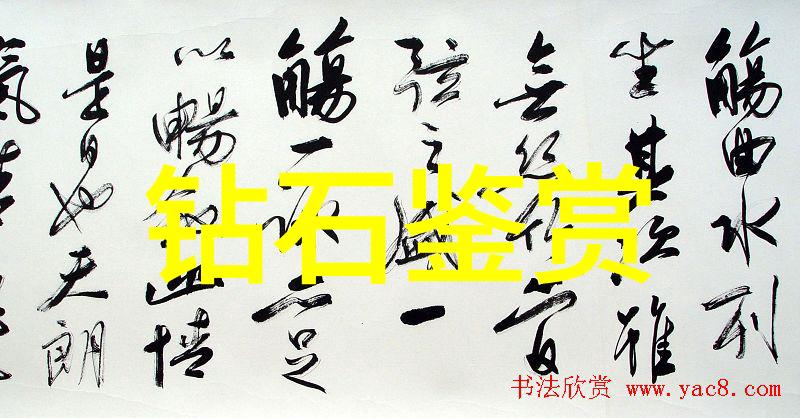 觴曲水列
坐其次雖
無絲竹管
弦之盛一
觴一詠亦足
以暢敘幽情
是日也天朗
氣清
钻石鉴赏
书法欣赏 www.yac8.com